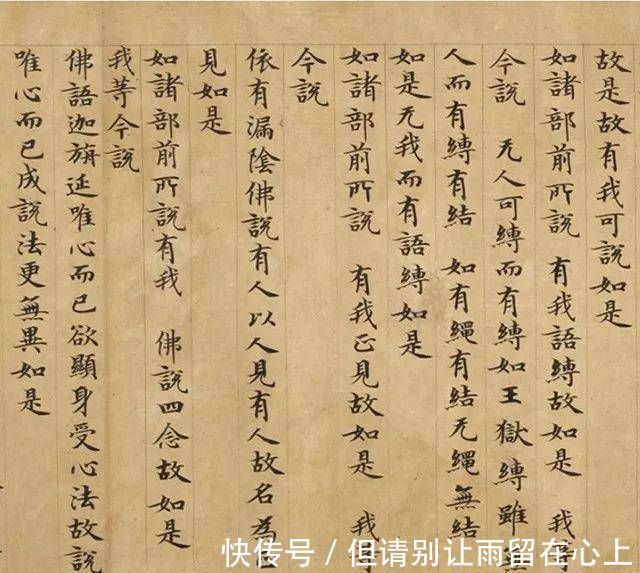 故是故有我可說如是
如諸部前所說　有我語縛故如是　我
今說　无人可縛而有縛如王獄縛雖
人而有縛有結　如有繩有結无繩無結
如是无我而有語縛如是
如諸部前所說　有我正見故如是　我
今說
依有漏陰佛說有人以人見有人故名為
見如是
如諸部前所說有我　佛說四念故如是
我等今說
佛語迦旃延唯心而已欲顯身受心法故說
唯心而已成說法更無異如是
快传号 / 但请别让雨留在心上